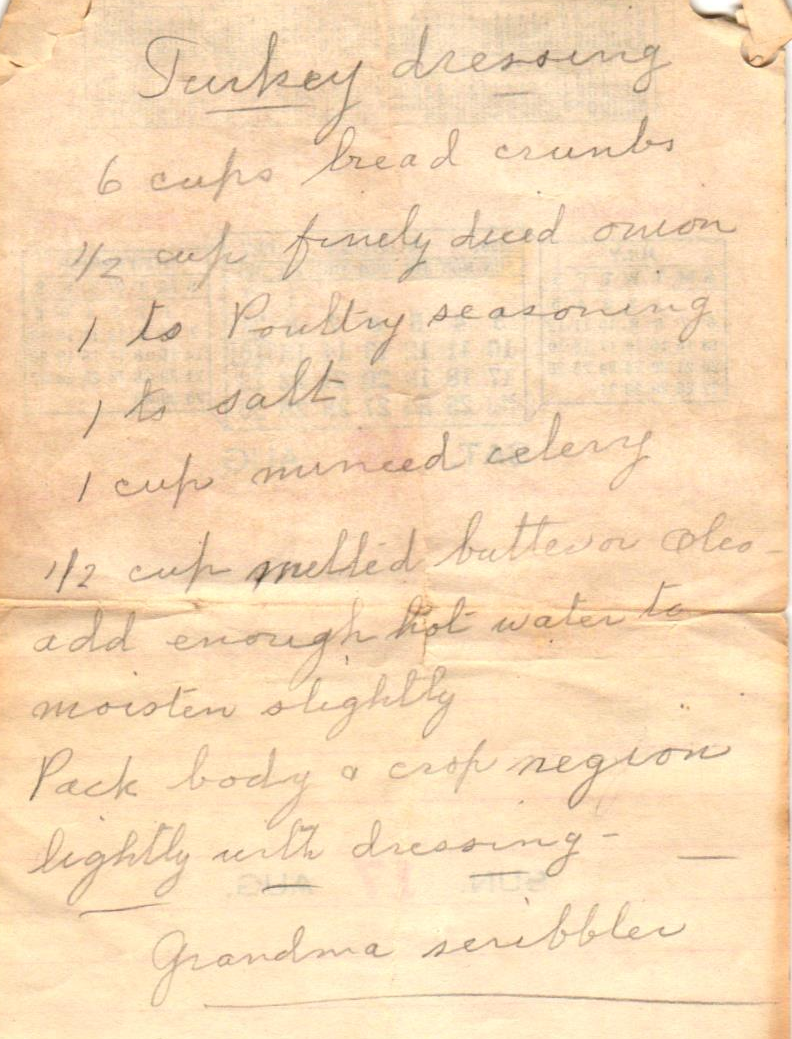 Turkey dressing
6 cups bread crumbs
1/2 cup finely diced onion
1 ts Poultry seasoning
1 ts salt
1 cup minced celery
1/2 cup melted butter or oleo -
add enough hot water to
moisten slightly
Pack body & crop region
lightly with dressing -
SUN. 17 AUG.
Grandma scribbler